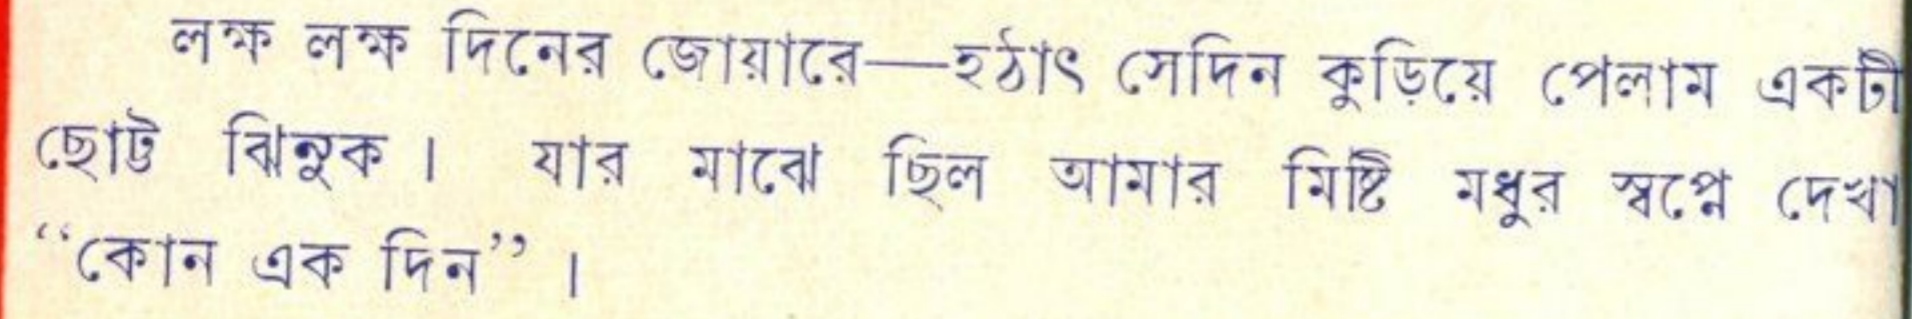 লক্ষ লক্ষ দিনের জোয়ারে—হঠাৎ সেদিন কুড়িয়ে পেলাম একটী
ছোট্ট ঝিনুক। যার মাঝে ছিল আমার মিষ্টি মধুর স্বপ্নে দেখা
“কোন এক দিন”।